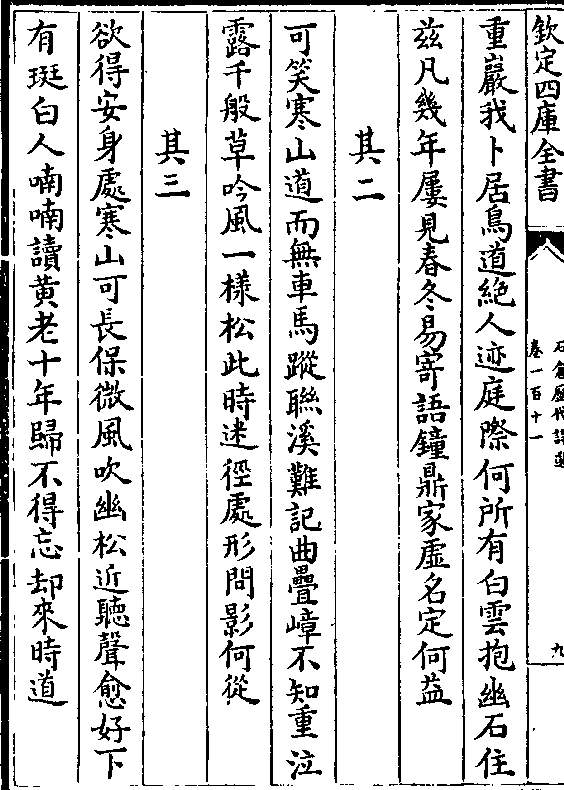 欽定四庫全書
石倉歷代詩選
卷一百十一
九
重巖我卜居鳥道絶人迹庭際何所有白雲抱幽石住
兹凡幾年屢見春冬易寄語鐘鼎家虚名定何益
其二
可笑寒山道而無車馬蹤聨溪難記曲疊嶂不知重泣
露千般草吟風一樣松此時迷徑處形問影何從
其三
欲得安身處寒山可長保微風吹幽松近聽聲愈好下
有斑白人喃喃讀黄老十年歸不得忘却來時道